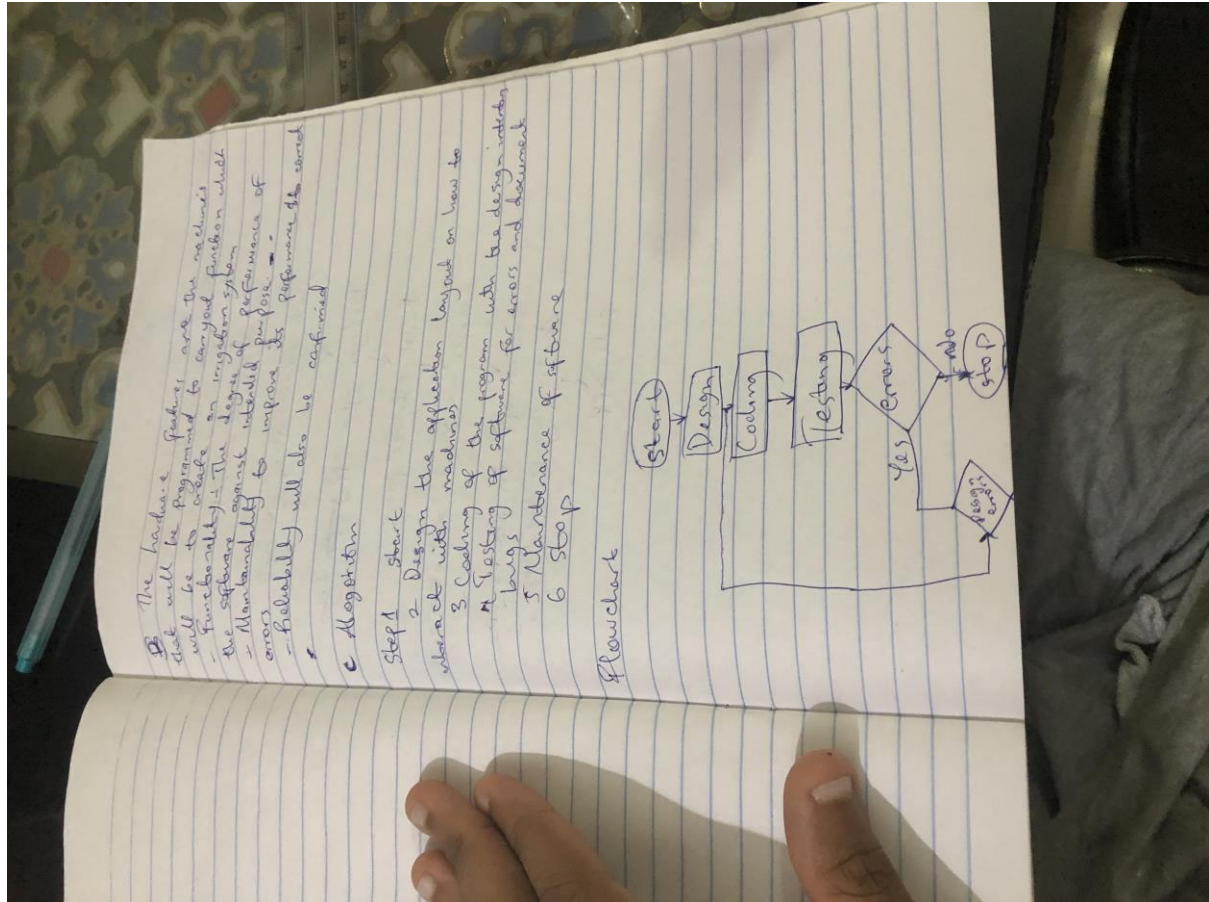 The hardware features are the machine's
that will be programmed to carryout function which
will be to create an irrigation system
- Functionality: The degree of performance of
the software against intended purpose.
- Maintainability to improve its performance correct
errors
- Reliability will also be confirmed
c Alogorithm
Step 1 start
2 Design the application layout on how to
interact with machines
3 Coding of the program with the design intention
4 Testing of software for errors and document
bugs
5 Maintenance of software
6 Stop
Flowchart
Start
Design
Coding
Testing
errors
Yes
No
Design
error
Stop